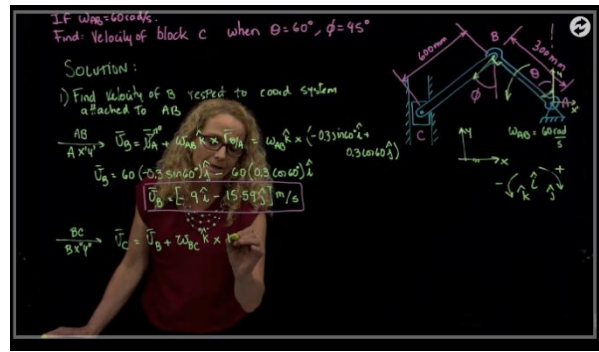 If ω_AB = 60 rad/s.
Find: Velocity of block C when θ = 60°, ϕ = 45°
SOLUTION:
1) Find velocity of B respect to coord system
attached to AB
AB
A x'y'
V̄_B = V̄_A + ω_AB k̂ x r̄_B/A = ω_AB k̂ x (-0.3 sin60° î +
0.3 cos60 ĵ)
V̄_B = 60 (-0.3 sin60°) ĵ - 60 (0.3 cos60°) î
V̄_B = [- 9 î - 15.59 ĵ] m/s
BC
B x"y"
V̄_C = V̄_B + ω_BC k̂ x
600mm
B
300mm
θ
ϕ
A
x
C
ω_AB = 60 rad
s
y
x
- î +
k̂ ĵ